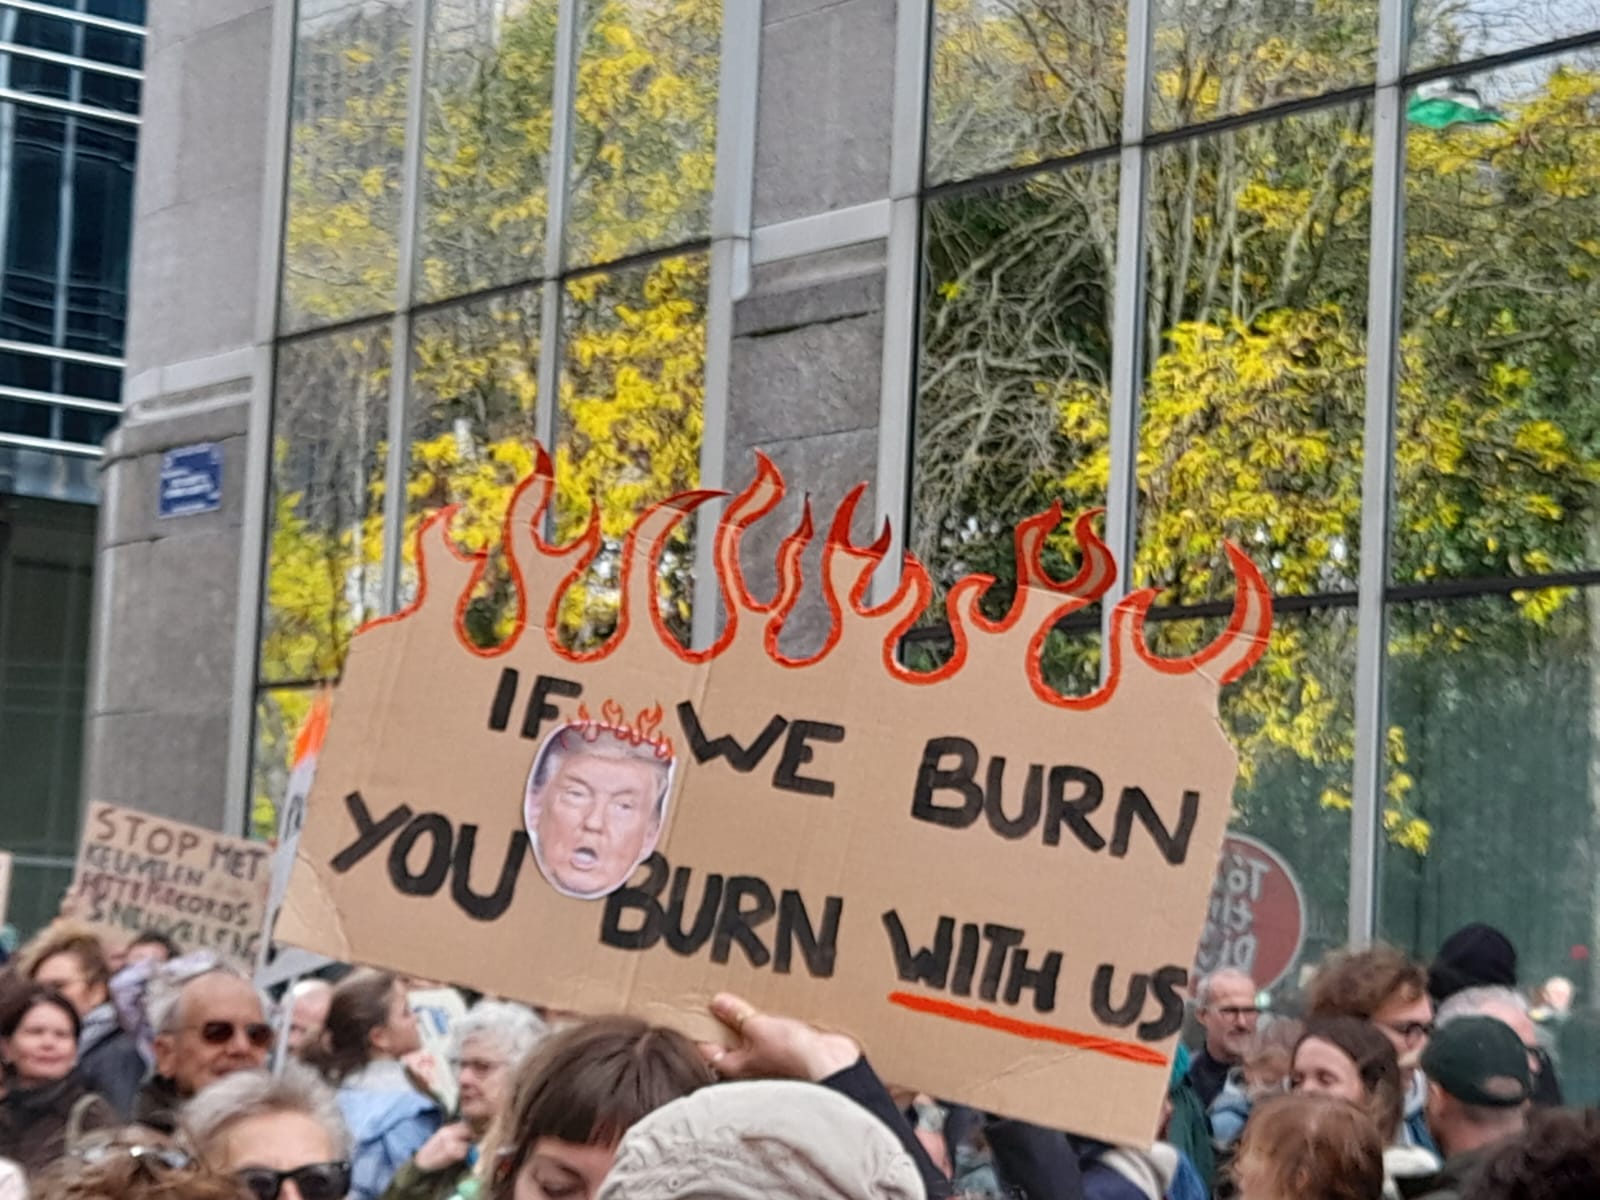 IF WE BURN
YOU BURN WITH US
STOP MET
KEUVELEN
HITTERECORDS
SNEUVELEN